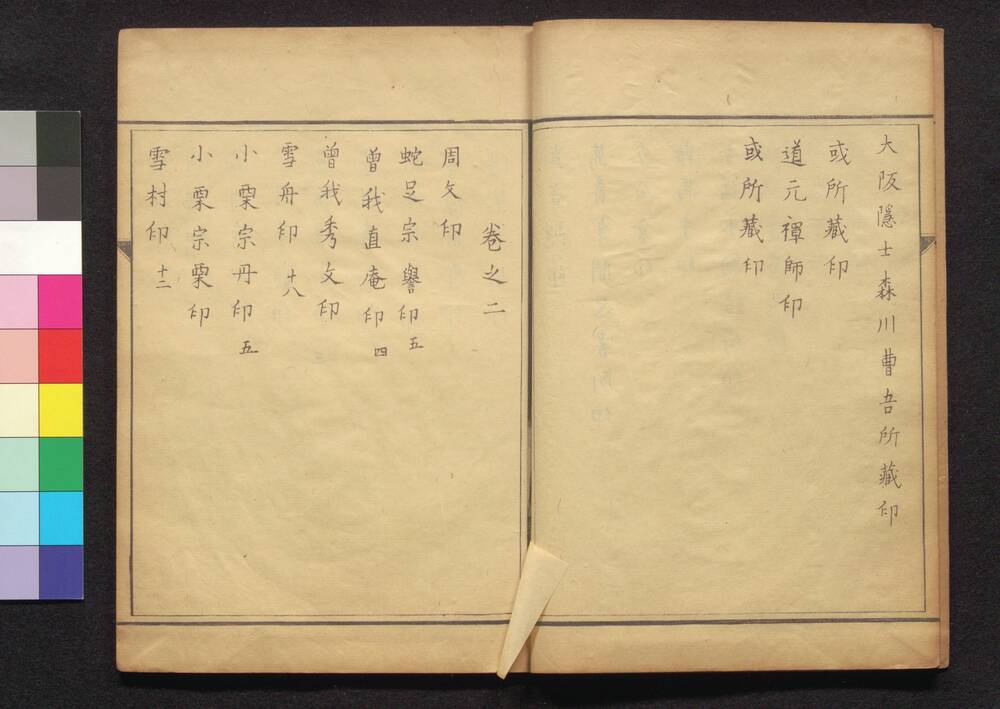 大阪隱士森川曹吾所藏印
或所藏印
道元禪師印
或所藏印
卷之二
周文印
蛇足宗譽印 五
曾我直庵印 四
曾我秀文印
雪舟印 十八
小栗宗丹印 五
小栗宗栗印
雪村印 十二